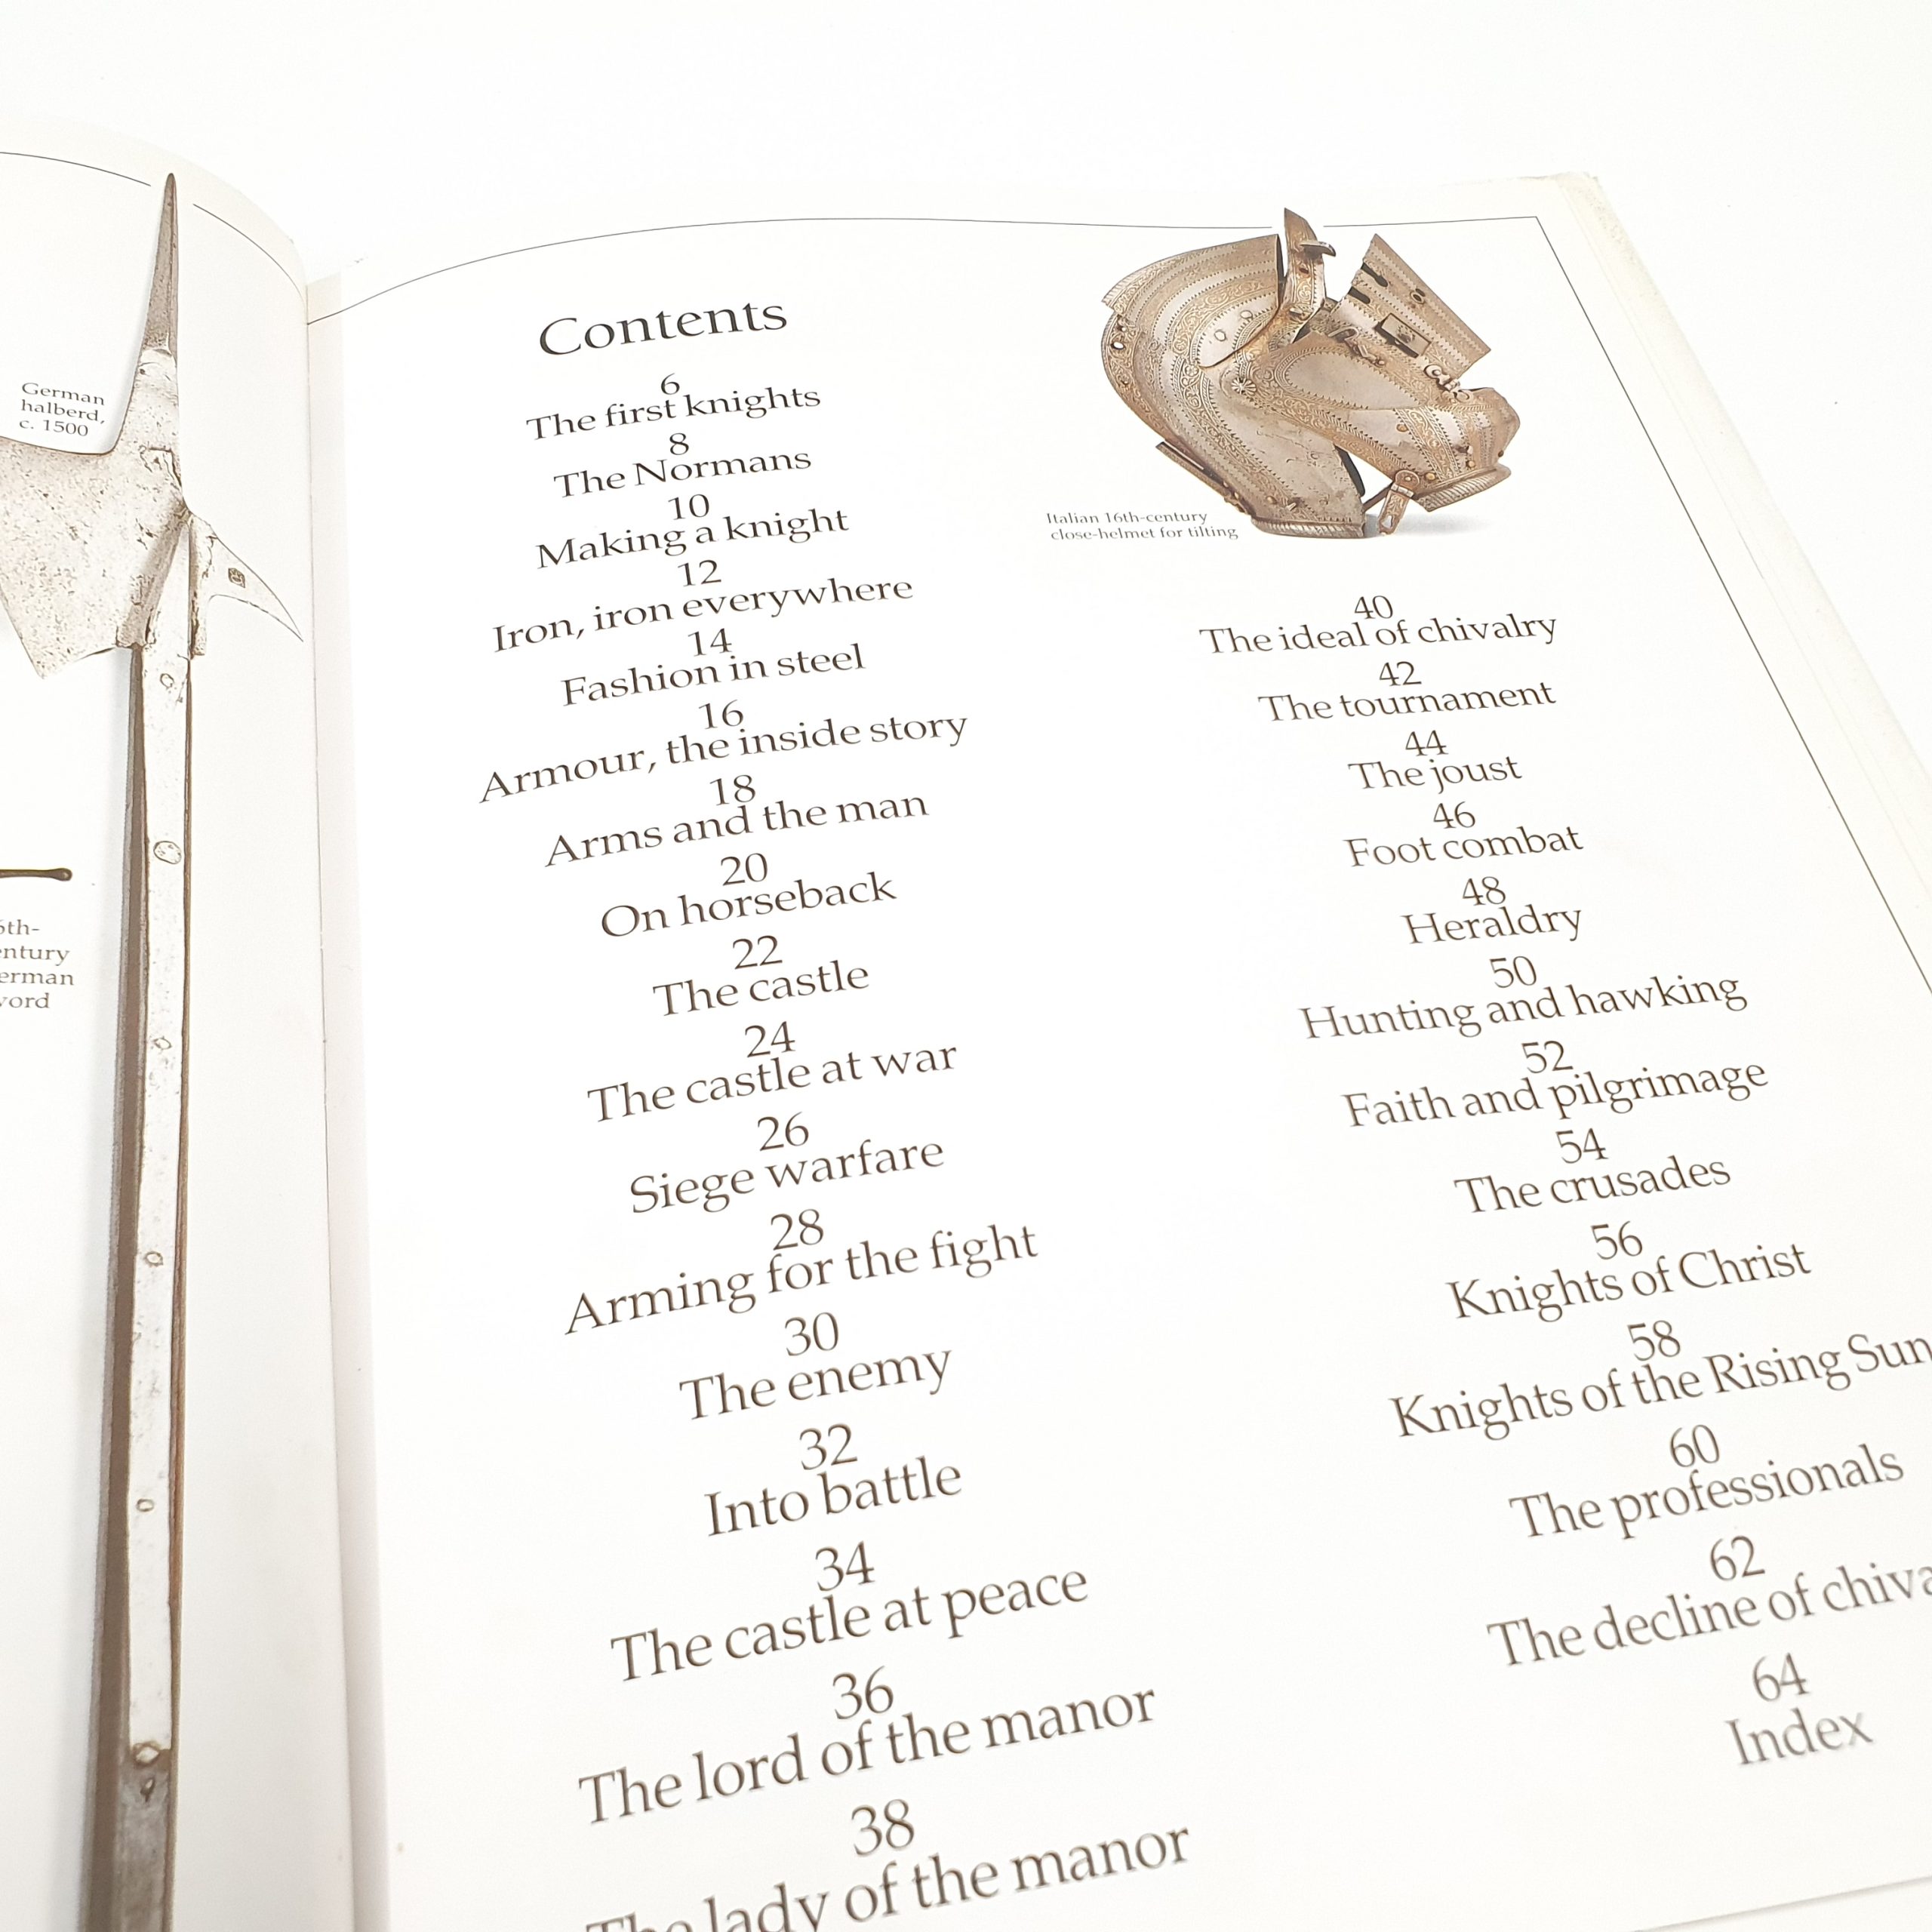 German
halberd,
c. 1500
ord
Contents
6
The first knights
8
The Normans
10
Making a knight
12
Iron, iron everywhere
14
Fashion in steel
16
Armour, the inside story
18
Arms and the man
20
On horseback
22
The castle
24
The castle at war
26
Siege warfare
28
Arming for the fight
30
The enemy
32
Into battle
34
The castle at peace
36
The lord of the manor
38
The lady of the manor
Italian 16th-century
close-helmet for tilting
40
The ideal of chivalry
42
The tournament
44
The joust
46
Foot combat
48
Heraldry
50
Hunting and hawking
52
Faith and pilgrimage
54
The crusades
56
Knights of Christ
58
Knights of the Rising Sun
60
The professionals
62
The decline of chiva
64
Index